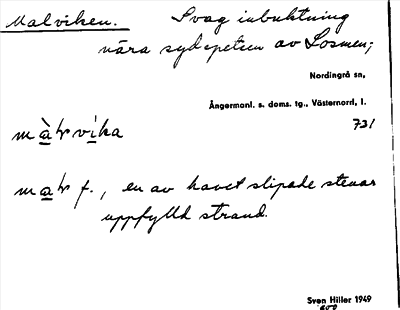 Malviken. Svag inbuktning
nära sydspetsen av Losmen;
Nordingrå sn,
Ångermanl. s. doms. tg., Västernorrl. l.
731
vika
f., en av havet slipade stenar
uppfylld strand.
Sven Hiller 1949